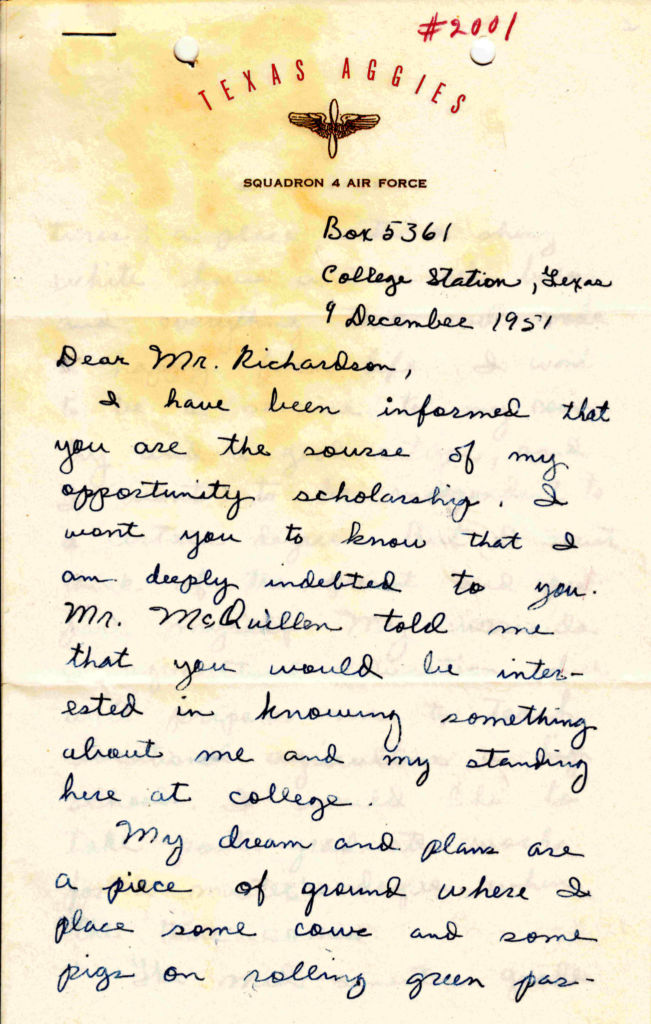 #2001
TEXAS AGGIES
SQUADRON 4 AIR FORCE
Box 5361
College Station, Texas
9 December 1951
Dear Mr. Richardson,
I have been informed that
you are the sourse of my
opportunity scholarship. I
want you to know that I
am deeply indebted to you.
Mr. McQuillen told me
that you would be inter-
ested in knowing something
about me and my standing
here at college.
My dream and plans are
a piece of ground where I
place some cows and some
pigs on rolling green pas-